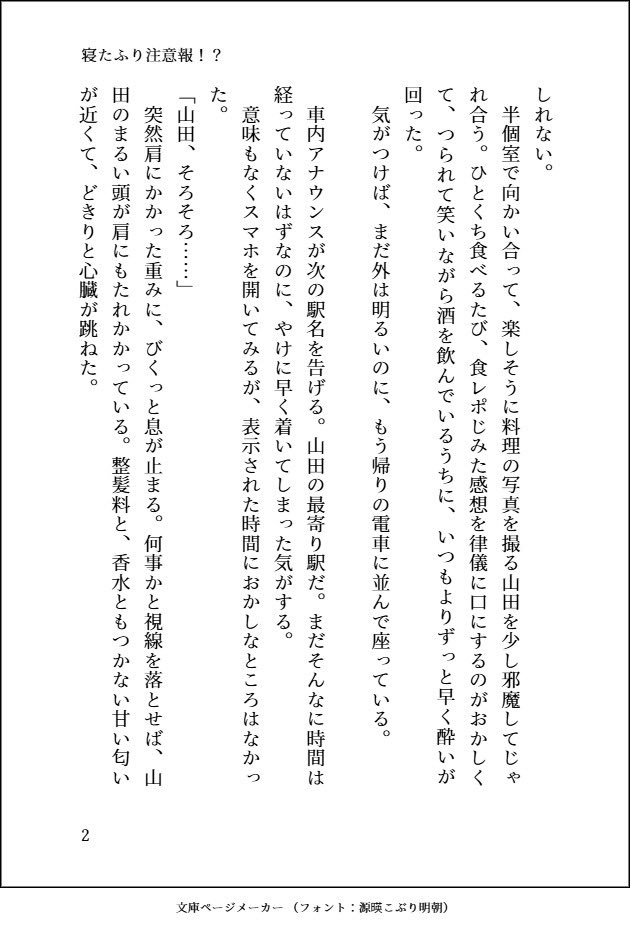 寝たふり注意報！？
しれない。
　半個室で向かい合って、楽しそうに料理の写真を撮る山田を少し邪魔してじゃ
れ合う。ひとくち食べるたび、食レポじみた感想を律儀に口にするのがおかしく
て、つられて笑いながら酒を飲んでいるうちに、いつもよりずっと早く酔いが
回った。
　気がつけば、まだ外は明るいのに、もう帰りの電車に並んで座っている。
　車内アナウンスが次の駅名を告げる。山田の最寄り駅だ。まだそんなに時間は
経っていないはずなのに、やけに早く着いてしまった気がする。
　意味もなくスマホを開いてみるが、表示された時間におかしなところはなかっ
た。
「山田、そろそろ……」
　突然肩にかかった重みに、びくっと息が止まる。何事かと視線を落とせば、山
田のまるい頭が肩にもたれかかっている。整髪料と、香水ともつかない甘い匂い
が近くて、どきりと心臓が跳ねた。
2
文庫ページメーカー（フォント：源暎こぶり明朝）